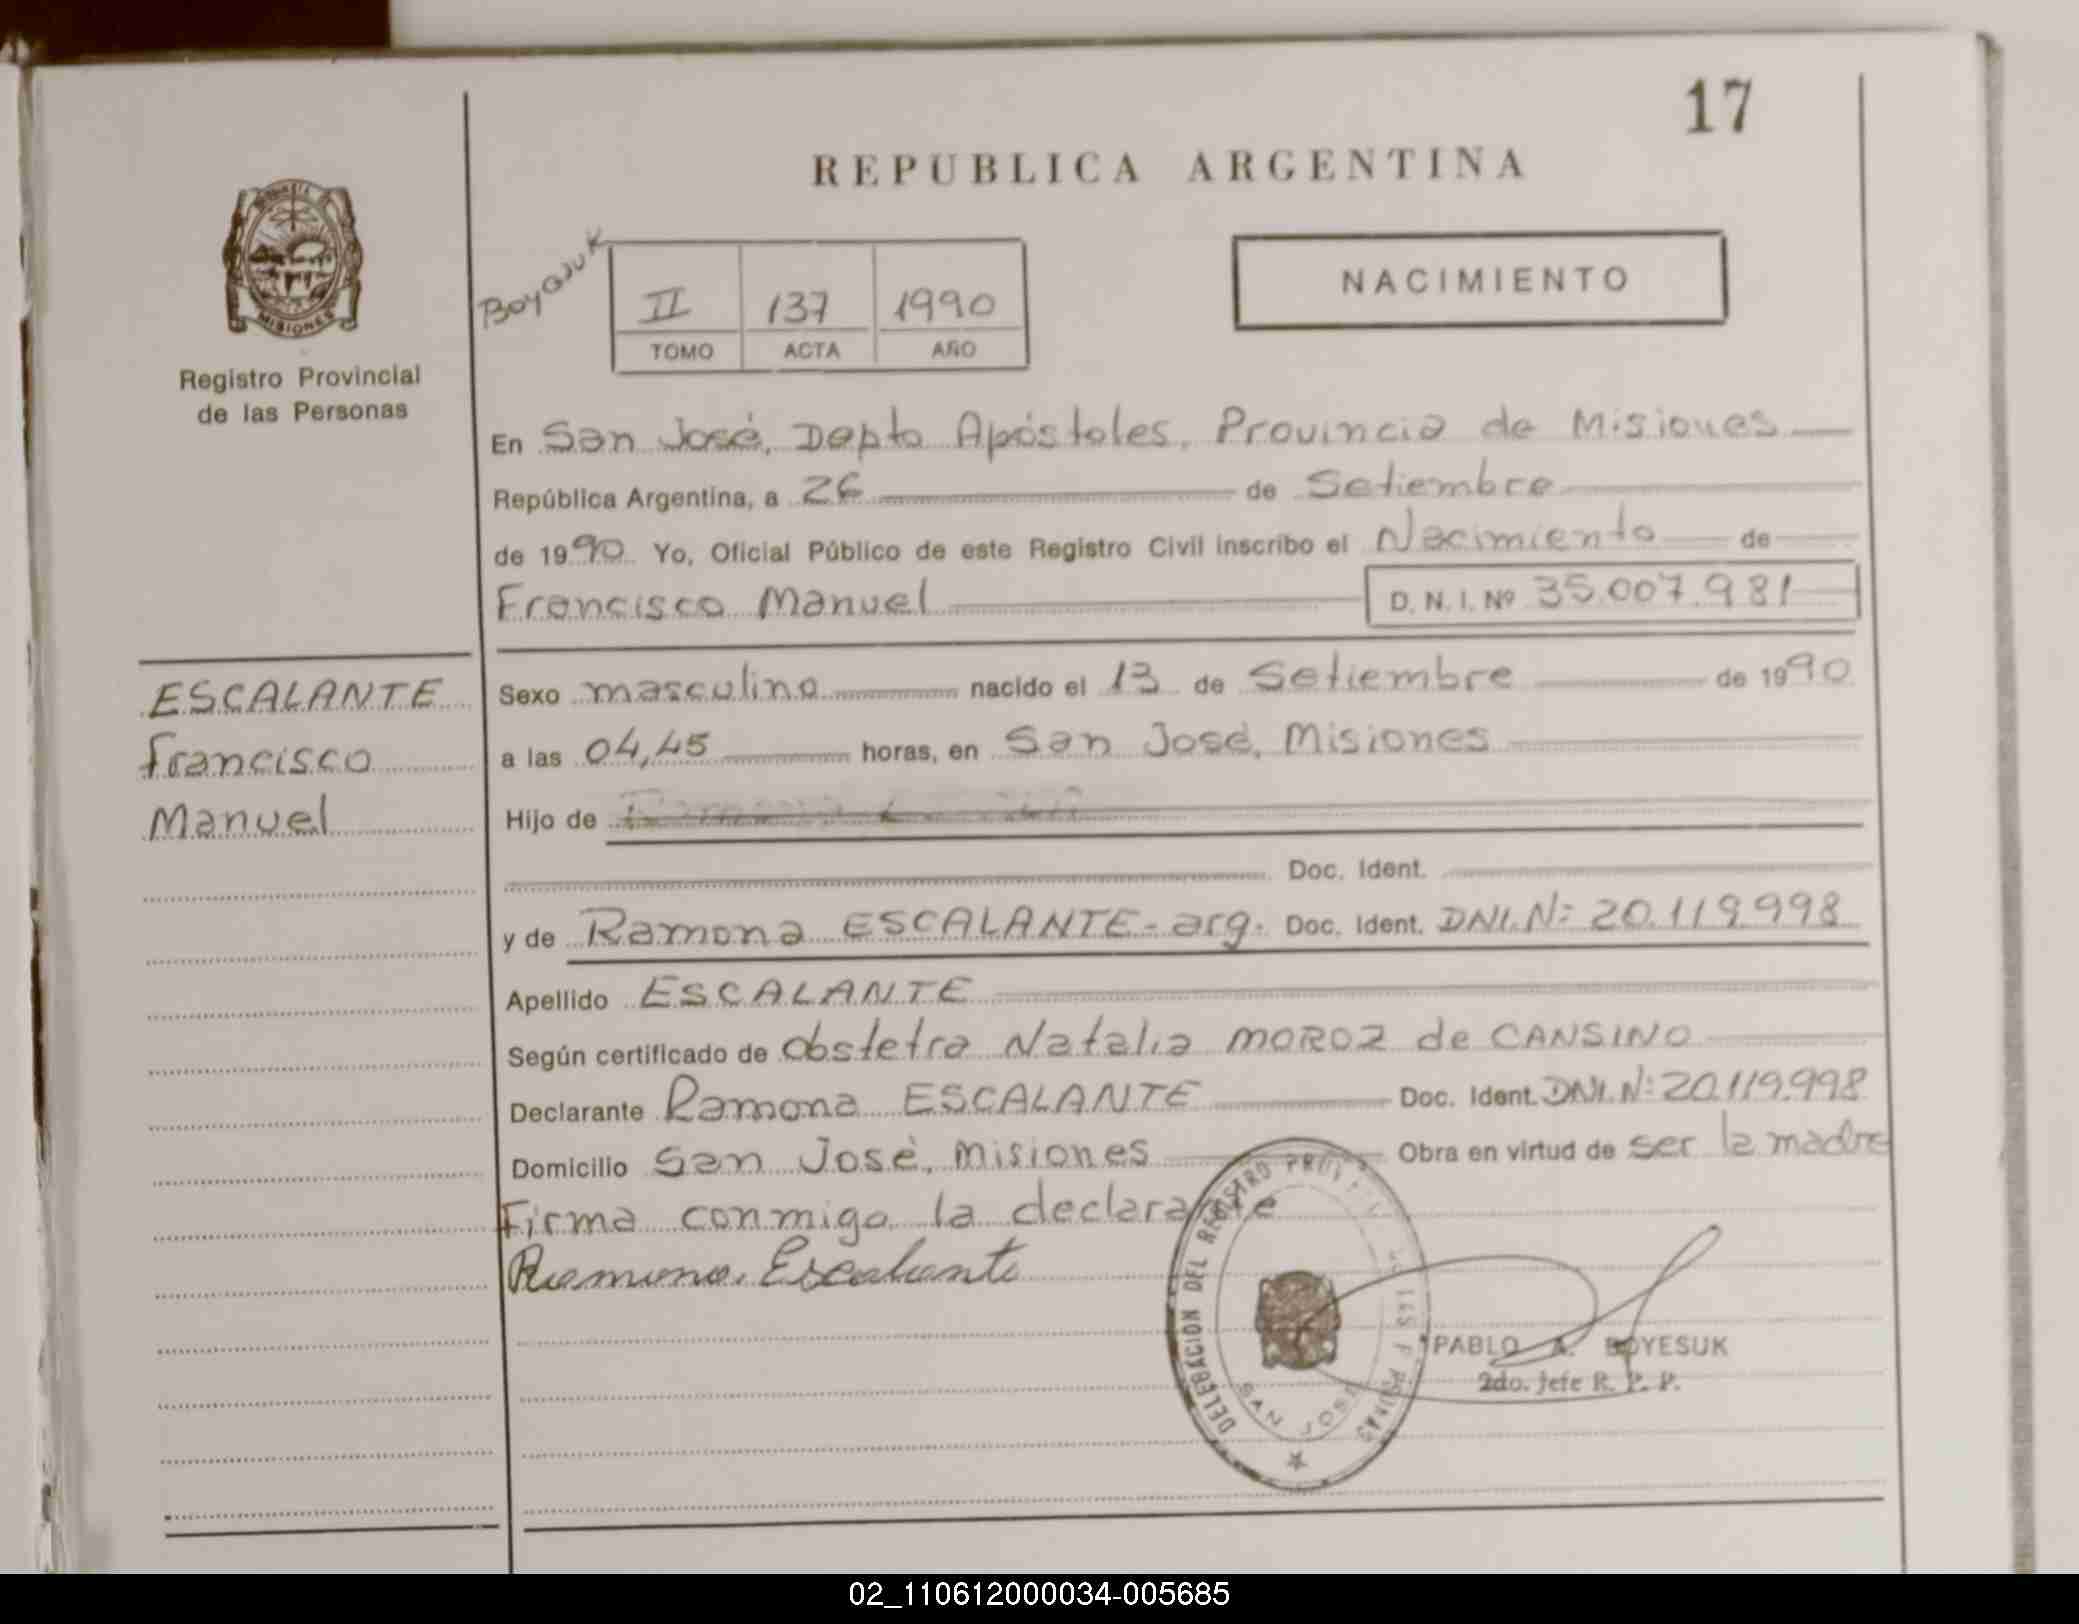 17
REPUBLICA ARGENTINA
MISIONES
Registro Provincial
de las Personas
Boyasuk
II 137 1990
TOMO ACTA AÑO
NACIMIENTO
En San José, Depto Apóstoles, Provincia de Misiones
República Argentina, a 26 de Setiembre
de 1990 Yo, Oficial Público de este Registro Civil inscribo el Nacimiento de
Francisco Manuel D. N. I. Nº 35.007.981
ESCALANTE
Francisco
Manuel
Sexo masculino nacido el 13 de Setiembre de 1990
a las 04,45 horas, en San José, Misiones
Hijo de
Doc. Ident.
y de Ramona ESCALANTE - arg. Doc. Ident. DNI. Nº 20.119.998
Apellido ESCALANTE
Según certificado de obstetra Natalia MOROZ de CANSINO
Declarante Ramona ESCALANTE Doc. Ident. DNI. Nº 20.119.998
Domicilio San José, Misiones Obra en virtud de ser la madre
Firma conmigo la declarante
Ramona Escalante
DELEGACION DEL REGISTRO
SAN JOSE
PABLO A. BOYESUK
2do. Jefe R. P. P.
02_110612000034-005685